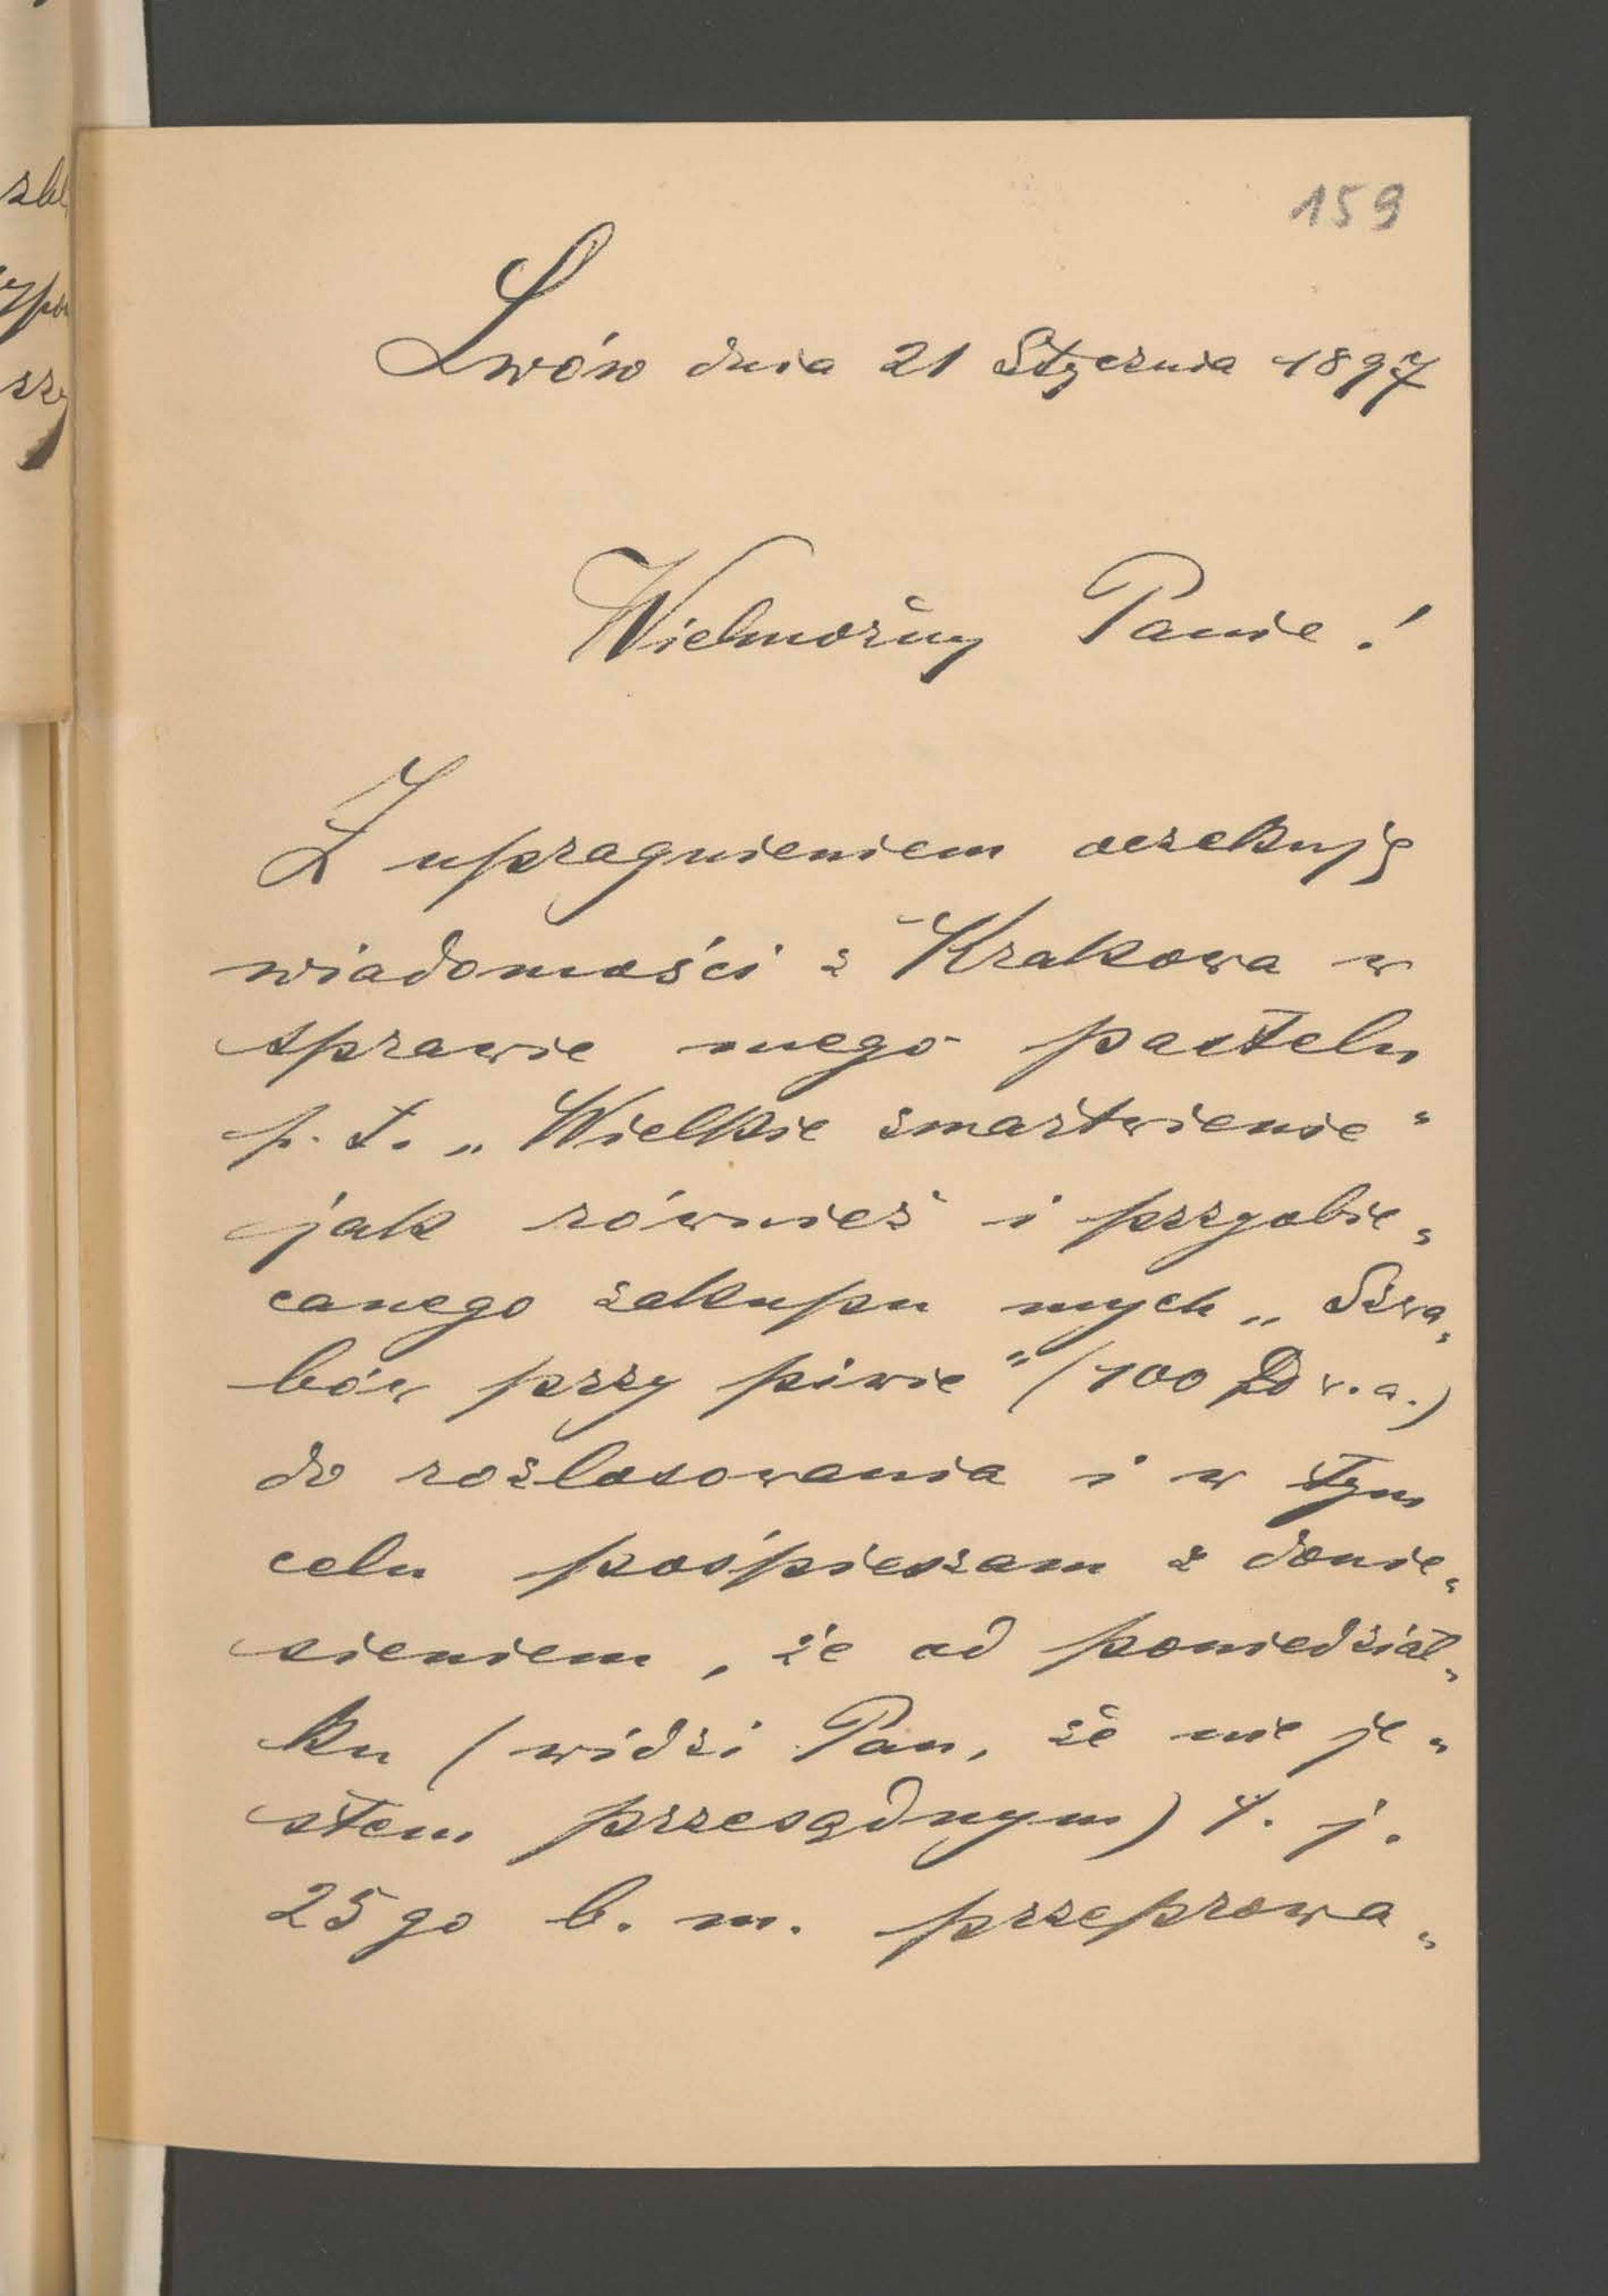 159
Lwów dnia 21 Stycznia 1897
Wielmożny Panie!
Z upragnieniem oczekuję
wiadomości z Krakowa w
sprawie mego pastelu
p. t. „Wielkie zmartwienie"
jak również i przyobie„
canego zakupu mych „Szwa„
bów przy piwie" (100 w. a.)
do rozlosowania i w tym
celu pośpieszam z donie„
sieniem, że od poniedział„
ku (widzi Pan, że nie je„
stem przesądnym) t. j.
25go b. m. przeprowa„